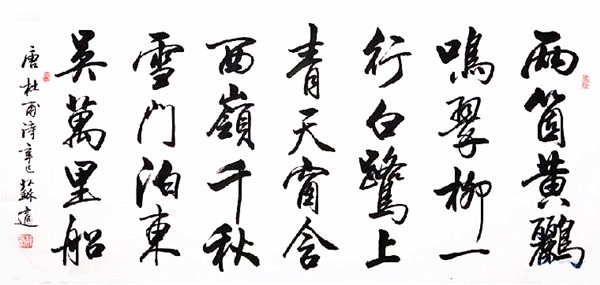 兩箇黃鸝
鳴翠柳一
行白鷺上
青天窗含
西嶺千秋
雪門泊東
吳萬里船
唐杜甫詩辛巳蘇